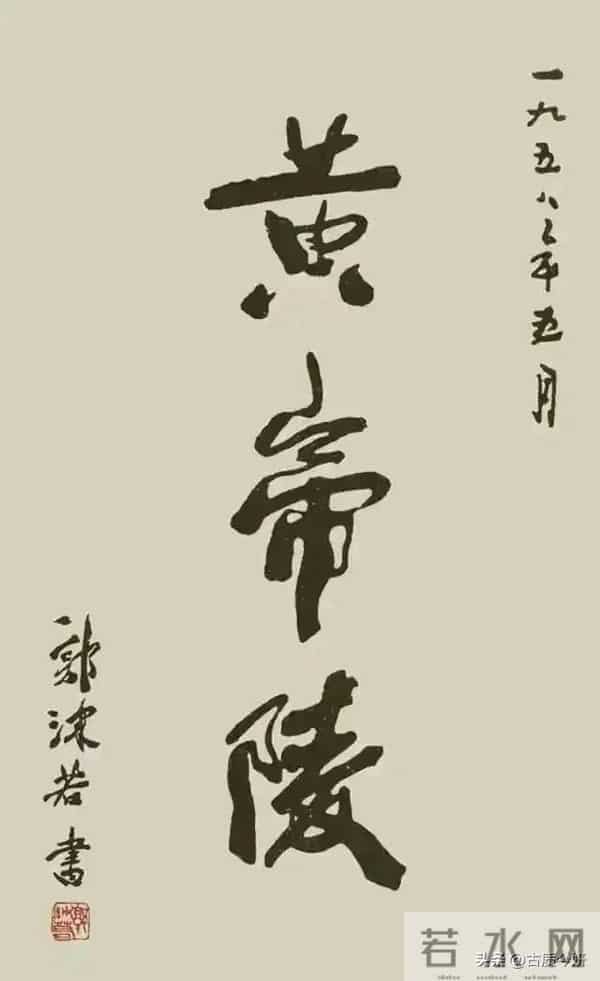 一九五八年五月
黄帝陵
郭沫若书
若水网
头条 @古质今妍